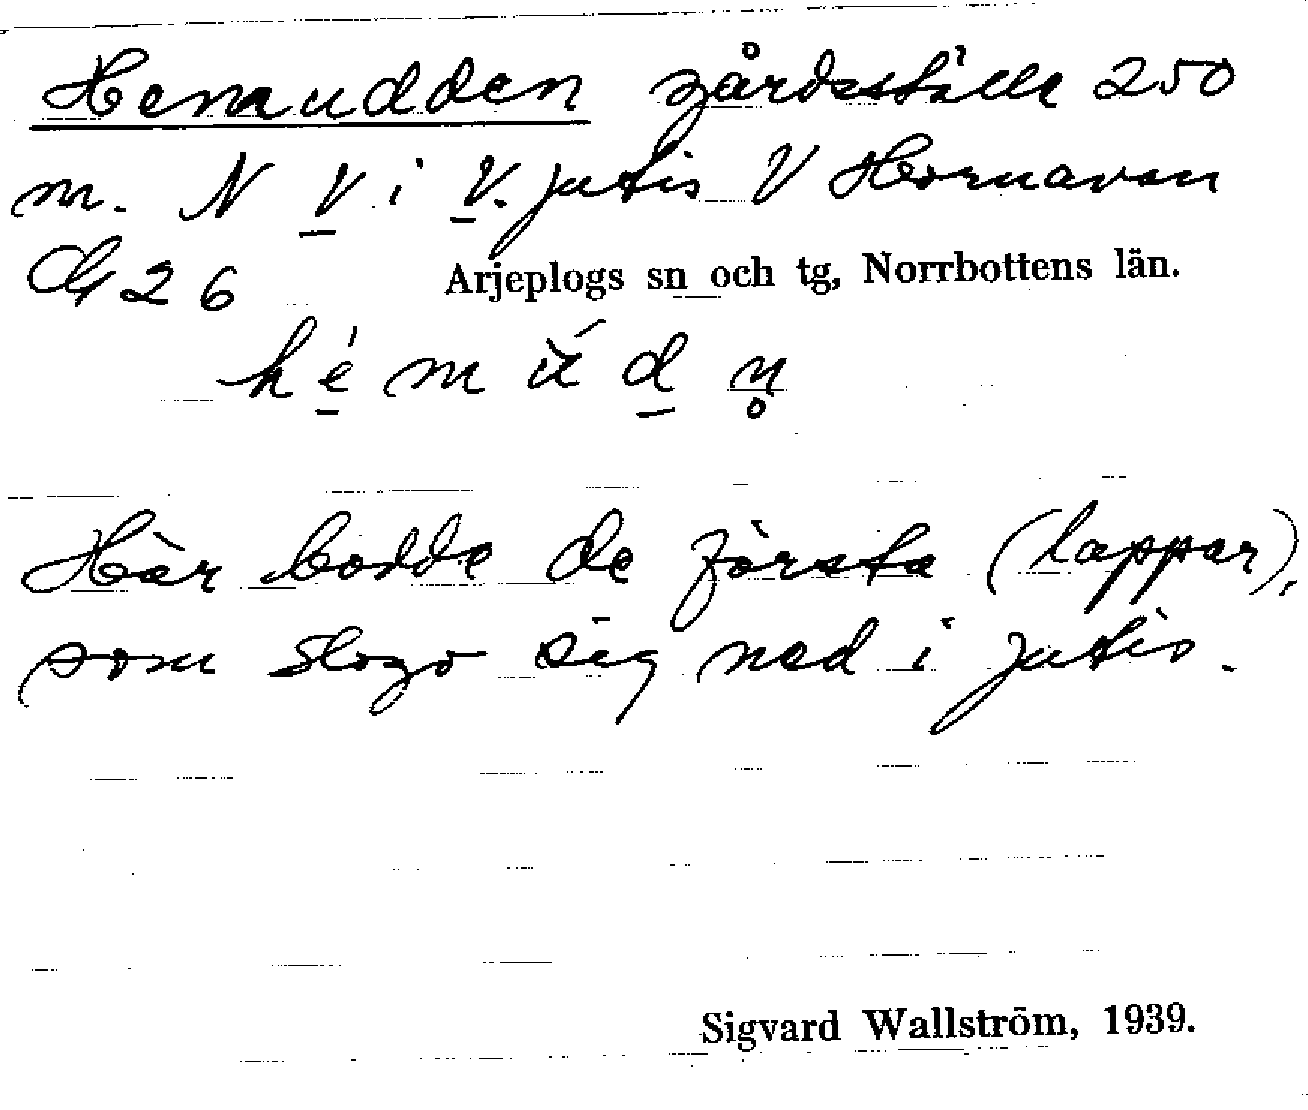 Hemudden gårdsställe 250
m. N V i V. Jutis V Hornavan
G 26 Arjeplogs sn och tg, Norrbottens län.
Här bodde de första (lappar),
som slogo sig ned i Jutis.
Sigvard Wallström, 1939.